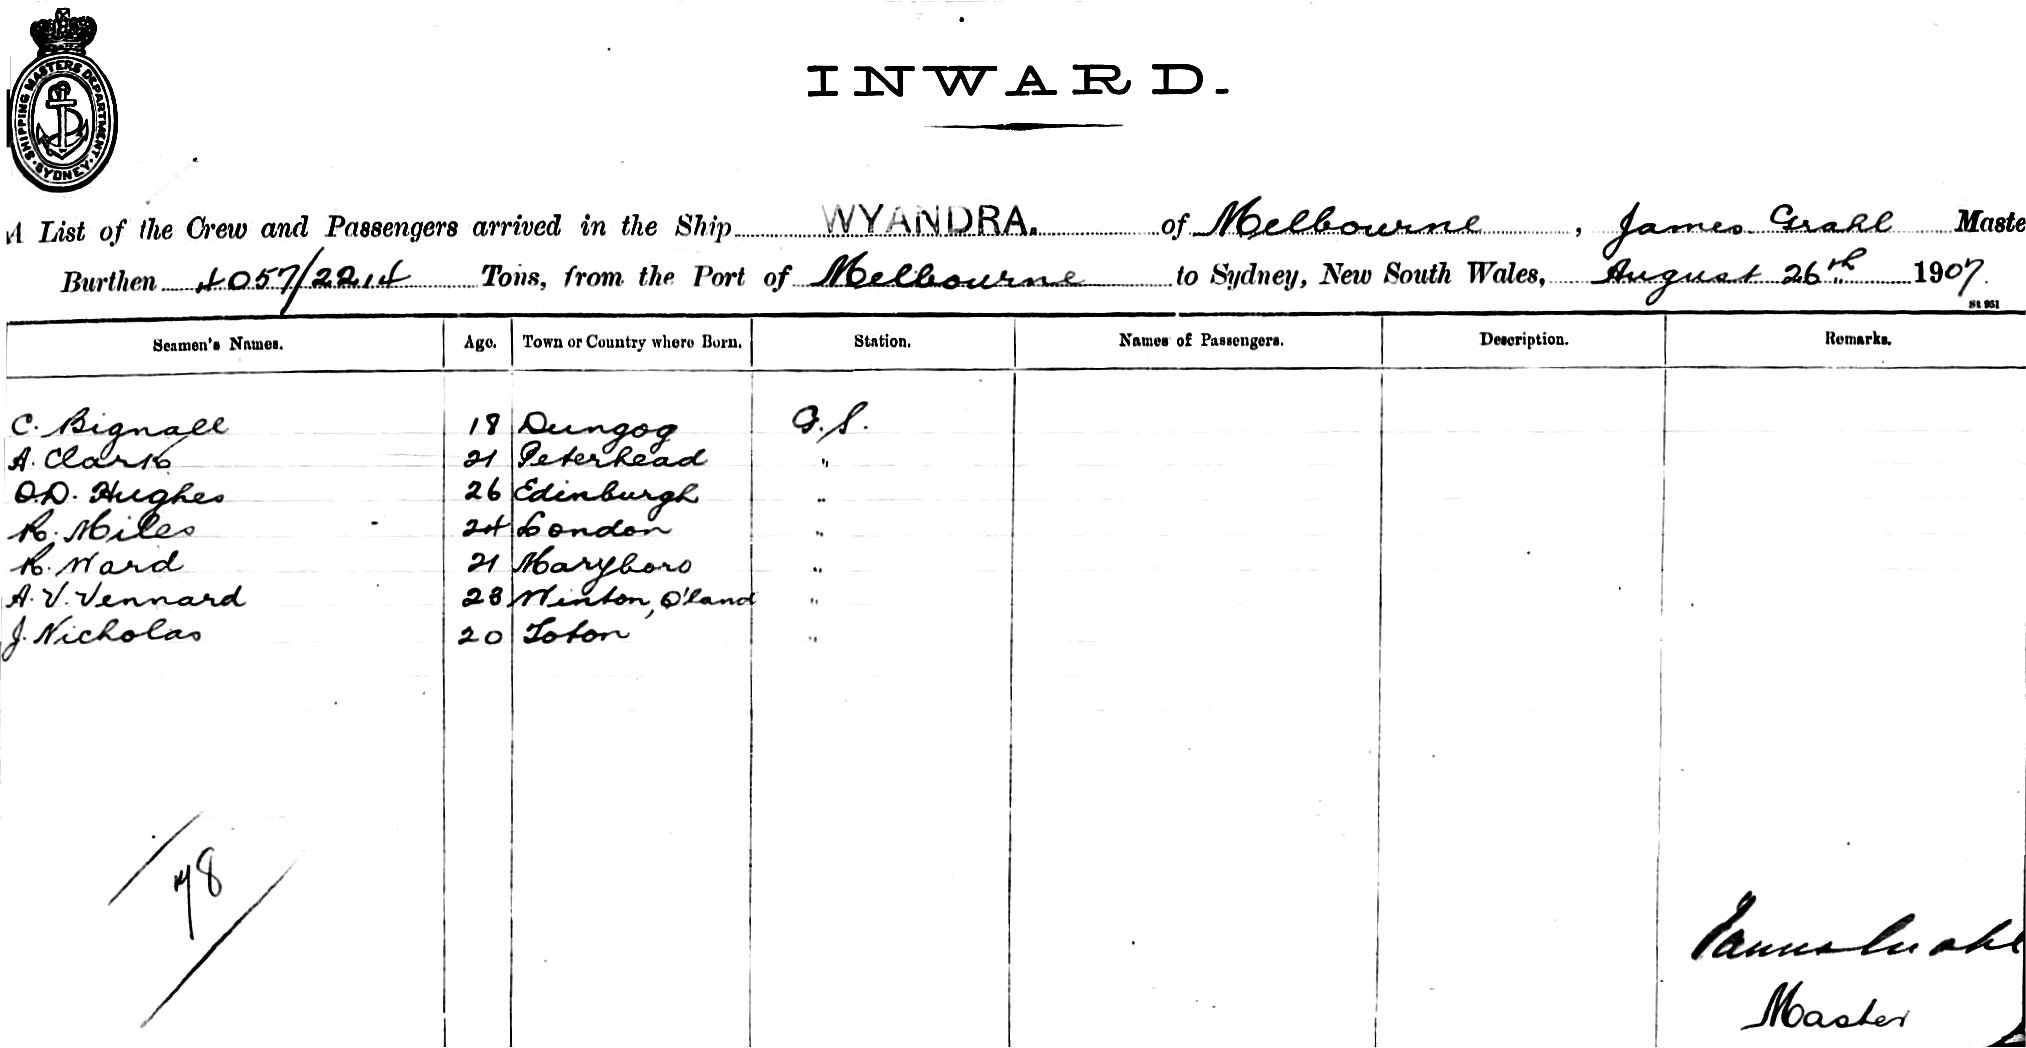 SHIPPING MASTERS DEPARTMENT · SYDNEY ·
INWARD.
A List of the Crew and Passengers arrived in the Ship WYANDRA. of Melbourne, James Grahl Maste
Burthen 4057/2214 Tons, from the Port of Melbourne to Sydney, New South Wales, August 26th 1907.
St 951
Seamen's Names. Age. Town or Country where Born. Station. Names of Passengers. Description. Remarks.
C. Bignall 18 Dungog G.S.
A. Clark 21 Peterhead "
O.D. Hughes 26 Edinburgh "
R. Miles 24 London "
R. Ward 21 Maryboro "
A. V. Vennard 23 Winton, Q'land "
J. Nicholas 20 Toton "
78
James Grahl
Master